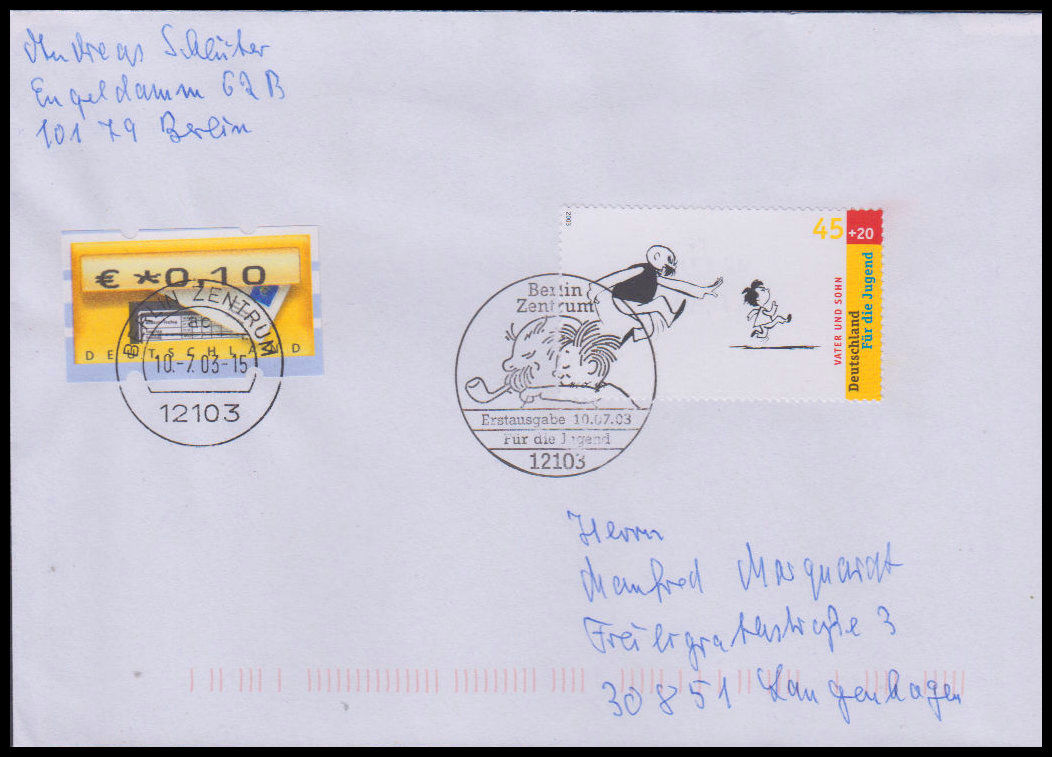 Andreas Schlüter
Engeldamm 62 B
10179 Berlin
€ *0,10
DEUTSCHLAND
BERLIN ZENTRUM
10.-7.03-15
12103
2003
45
+20
VATER UND SOHN
Deutschland
Für die Jugend
Berlin
Zentrum
Erstausgabe 10.07.03
Für die Jugend
12103
Herrn
Manfred Marquardt
Freiligrathstraße 3
30851 Langenhagen